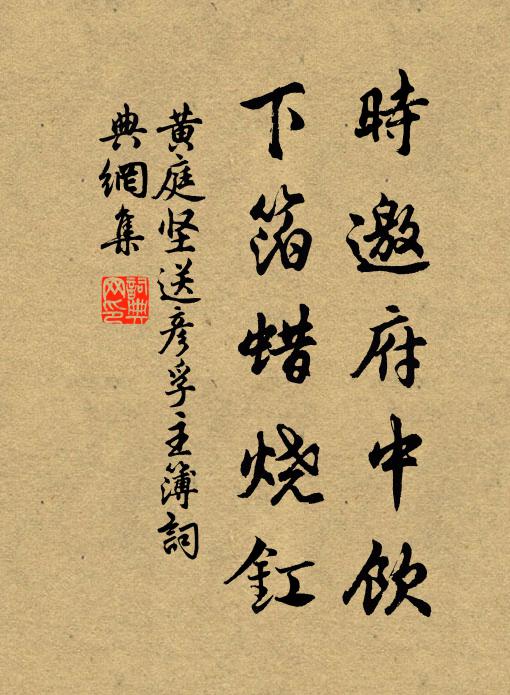 時邀府中飲
下箔蜡烧釭
黄庭坚送彦孚主簿詞
典網集
詞典
网印